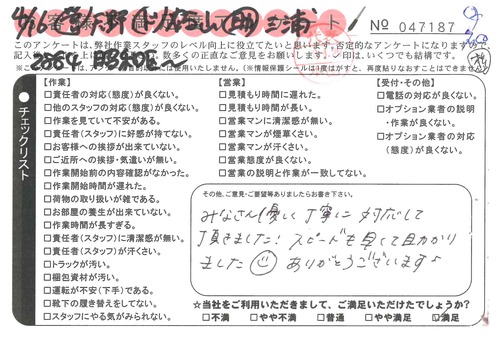 4/16 営 矢野
三浦
アンケート
№ 047187
このアンケートは、弊社作業スタッフのレベル向上に役立てたいと思います。否定的なアンケートになりますが
数多くの正直なご意見をお願いします。
【作業】
□責任者の対応(態度)が良くない。
□他のスタッフの対応(態度)が良くない。
□作業を見ていて不安がある。
□責任者(スタッフ)に好感が持てない。
□お客様への挨拶が出来ていない。
□ご近所への挨拶・気遣いが無い。
□作業開始前の内容確認がなかった。
□作業開始時間が遅れた。
□荷物の取り扱いが雑である。
□お部屋の養生が出来ていない。
□作業時間が長すぎる。
□責任者(スタッフ)に清潔感が無い。
□責任者(スタッフ)が汗くさい。
□トラックが汚い。
□梱包資材が汚い。
□運転が不安(下手)である。
□靴下の履き替えをしてない。
□スタッフにやる気がみられない。
【営業】
□見積もり時間に遅れた。
□見積もり時間が長い。
□営業マンに清潔感が無い。
□営業マンが煙草くさい。
□営業マンが汗くさい。
□営業態度が良くない。
□営業の説明と作業が一致してない。
【受付・その他】
□電話の対応が良くない。
□オプション業者の説明
・作業が良くない。
□オプション業者の対応
(態度)が良くない。
●チェックリスト
その他、ご意見・ご要望等ありましたらお書き下さい。
みなさん優しく丁寧に対応して
頂きました！スピードも見てて助かり
ました ありがとうございます♪
☆当社をご利用いただきまして、ご満足いただけたでしょうか？
□不満 □やや不満 □普通 □やや満足 □満足